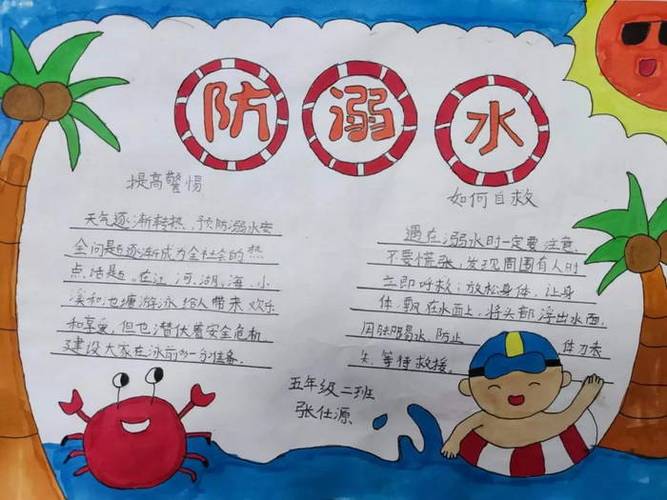 防溺水
提高警惕
天气逐渐转热,预防溺水安
全问题逐渐成为全社会的热
点话题。在江,河,湖,海,小
溪和池塘游泳给人带来欢乐
和享受,但也潜伏着安全危机
建设大家在泳前多一分准备.
如何自救
遇在溺水时一定要注意,
不要慌张,发现周围有人时
立即呼救;放松身体,让身
体飘在水面上,将头部浮出水面,
用脚踢水,防止体力丧
失,等待救援。
五年级二班
张仕源